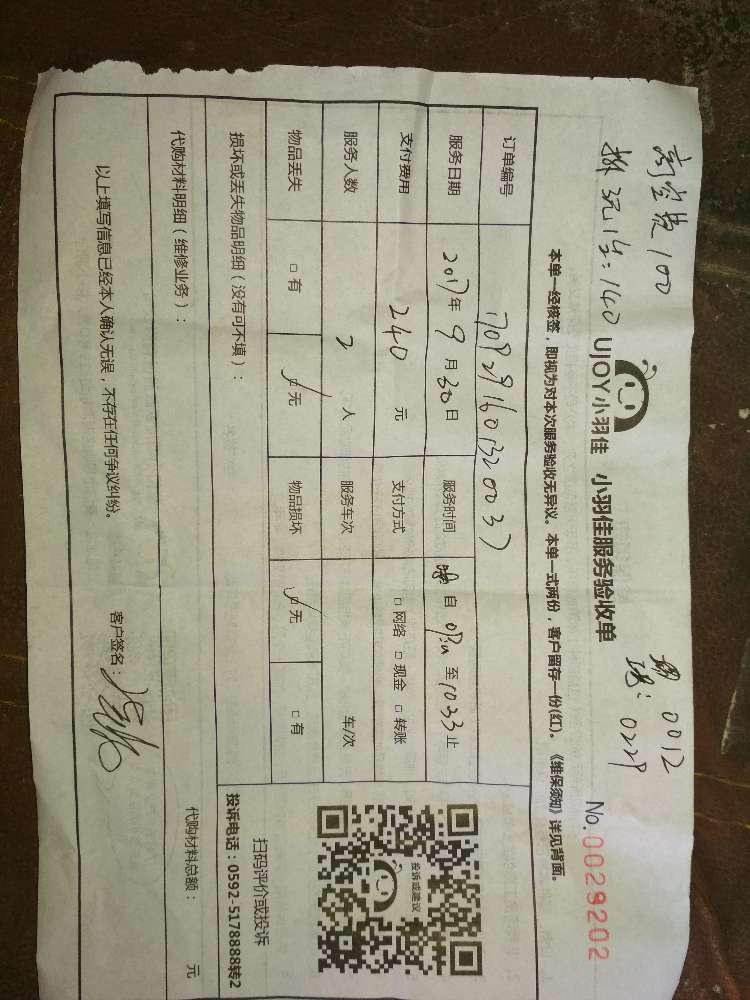 高空费100
拆玩1台:140
0012
0229
UJOY小羽佳 小羽佳服务验收单 No.0029202
本单一经核签,即视为对本次服务验收无异议。本单一式两份,客户留存一份(红)。《维保须知》详见背面。
订单编号 1709291601320037
服务日期 2017年 9月 30日 服务时间 自 0930 至 1033 止
支付费用 240 元 支付方式 □网络 □现金 □转账
服务人数 2 人 服务车次 车/次
物品丢失 □有 □无 物品损坏 □无 □有
损坏或丢失物品明细(没有可不填):
投诉或建议
扫码评价或投诉
投诉电话:0592-5178888转2
代购材料明细(维修业务): 代购材料总额: 元
以上填写信息已经本人确认无误,不存在任何争议纠纷。 客户签名: